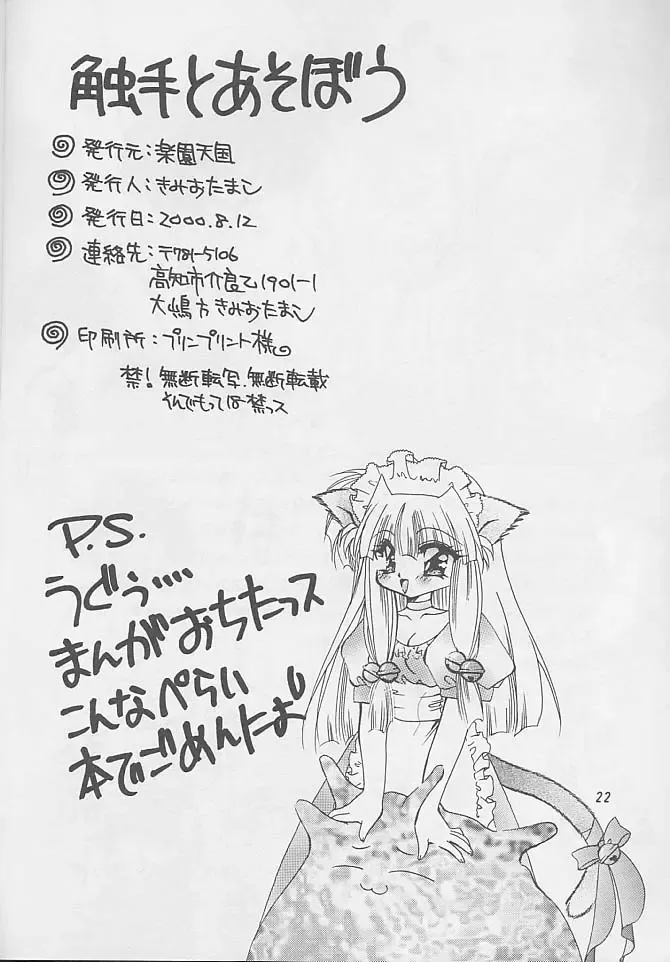 触手とあそぼう
発行元:楽園天国
発行人:きみおたまこ
発行日:2000.8.12
連絡先:〒781-5106
高知市介良乙1901-1
大嶋方きみおたまこ
印刷所:プリンプリント様。
禁!無断転写、無断転載
なんでもっては禁っス
P.S.
うぐぅ・・・・
まんがおちたっス
こんなぺらい
本でごめんだよ
22